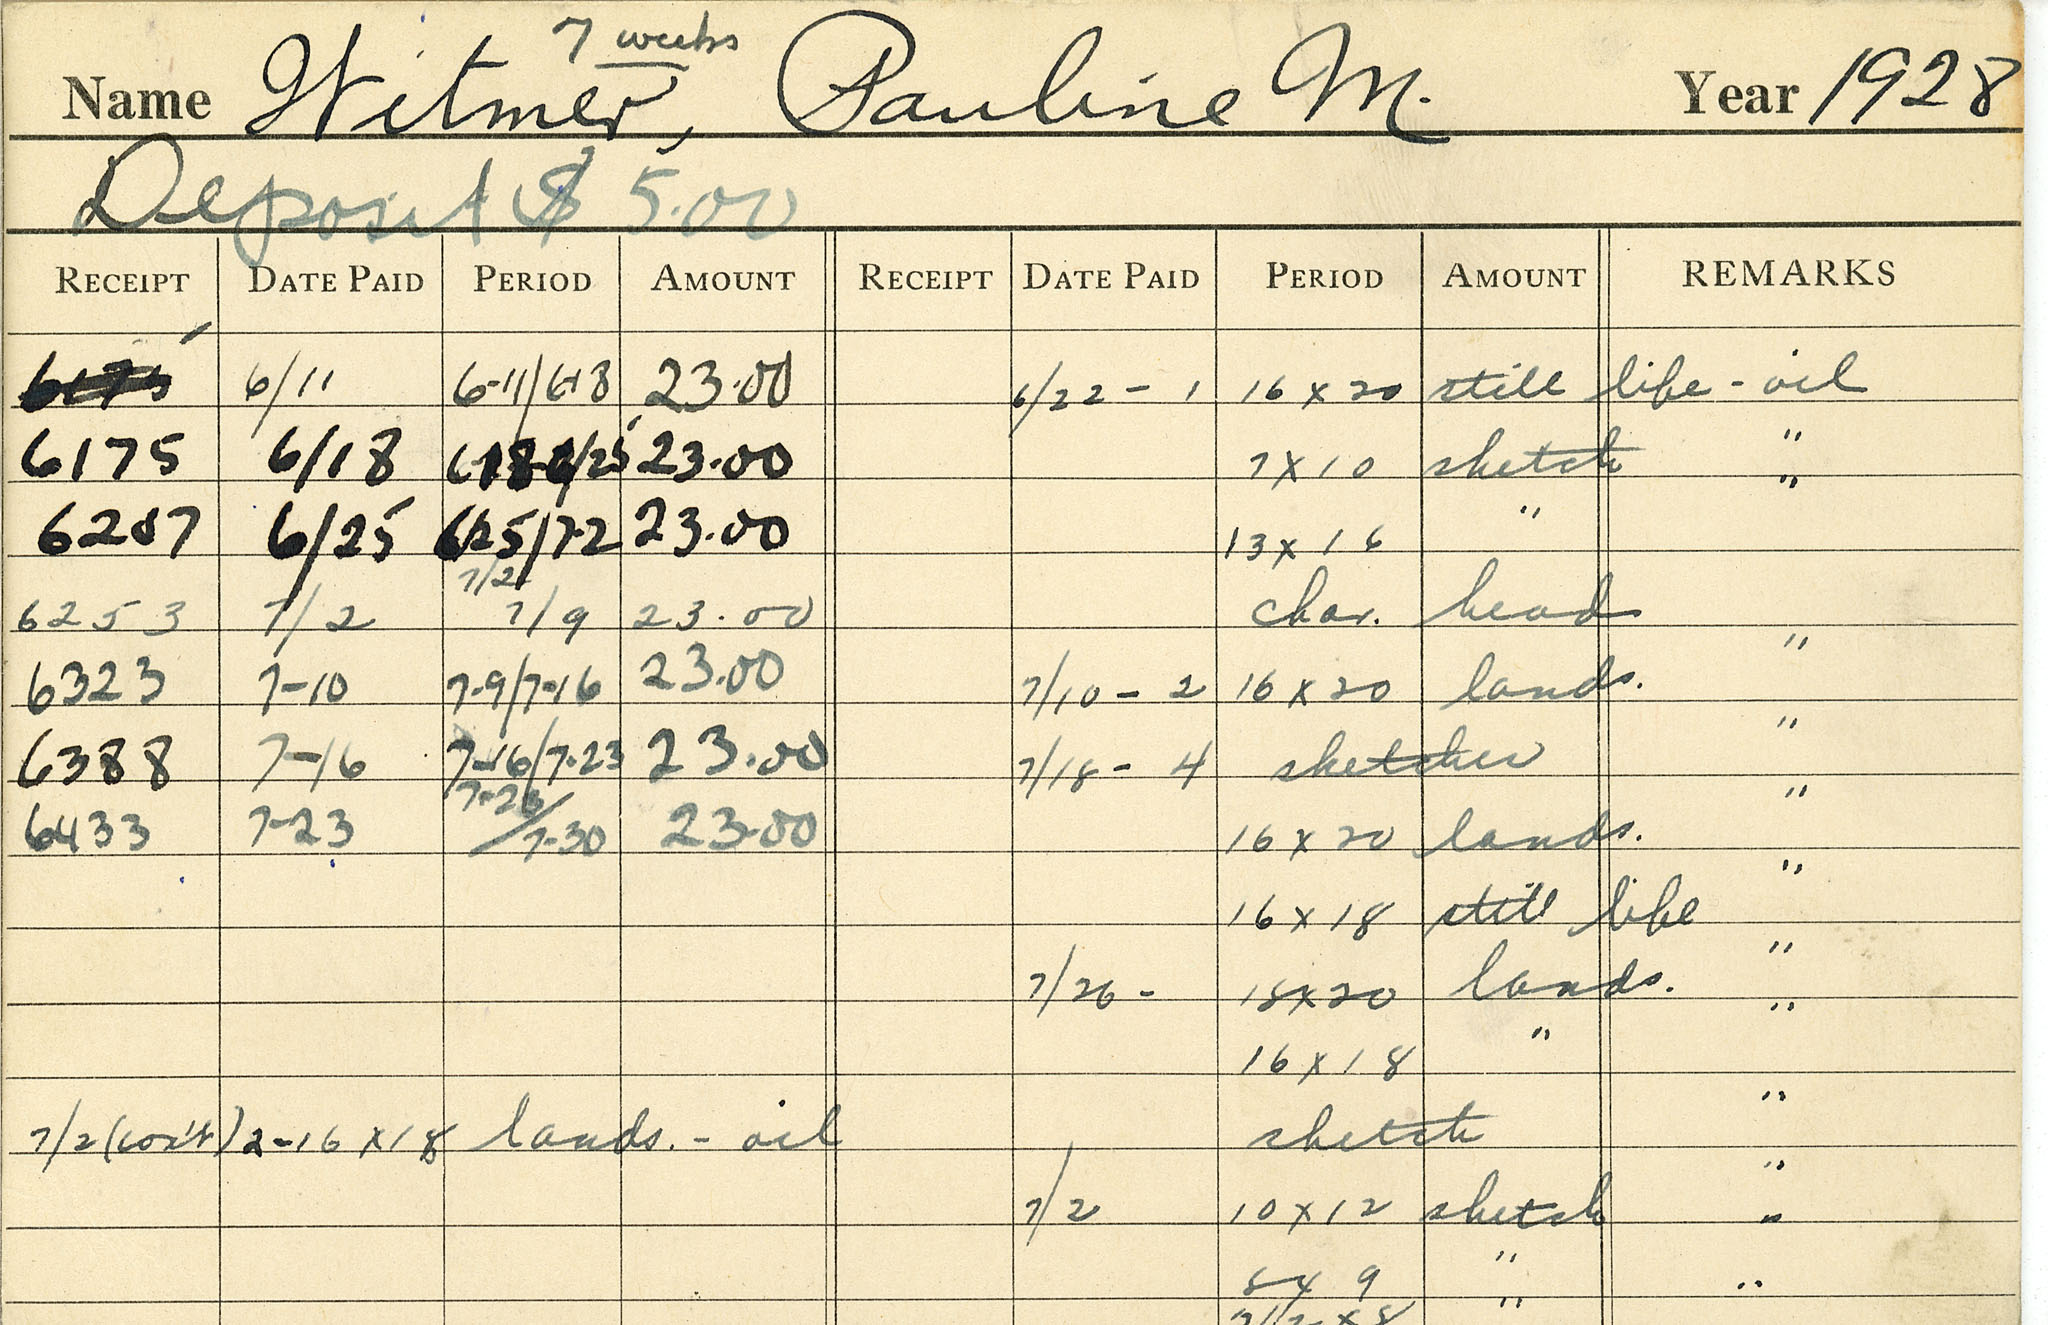 7 weeks
Name Witmer, Pauline M. Year 1928
Deposit $5.00
RECEIPT DATE PAID PERIOD AMOUNT RECEIPT DATE PAID PERIOD AMOUNT REMARKS
6175 6/11 6-11/6-18 23.00 6/22 - 1 16 x 20 still life - oil
6175 6/18 6-18-6/25 23.00 7 x 10 sketch "
6207 6/25 6/25/7-2 23.00 13 x 16 " "
6253 7/2 7/2 7/9 23.00 char. head
6323 7-10 7-9/7-16 23.00 7/10 - 2 16 x 20 lands. "
6388 7-16 7-16/7-23 23.00 7/18 - 4 sketches "
6433 7-23 7-23/7-30 23.00 16 x 20 lands. "
16 x 18 still life "
7/26 - 18 x 20 lands. "
16 x 18 " "
7/2 (con't) 2 - 16 x 18 lands. - oil sketch "
7/2 10 x 12 sketch "
8 x 9 " "
7 1/2 x 8 " "